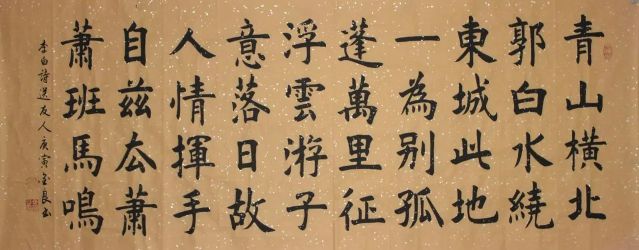 青山橫北
郭白水繞
東城此地
一為别孤
蓬萬里征
浮雲游子
意落日故
人情揮手
自茲厺蕭
蕭班馬鳴
李白詩送友人庚寅良书